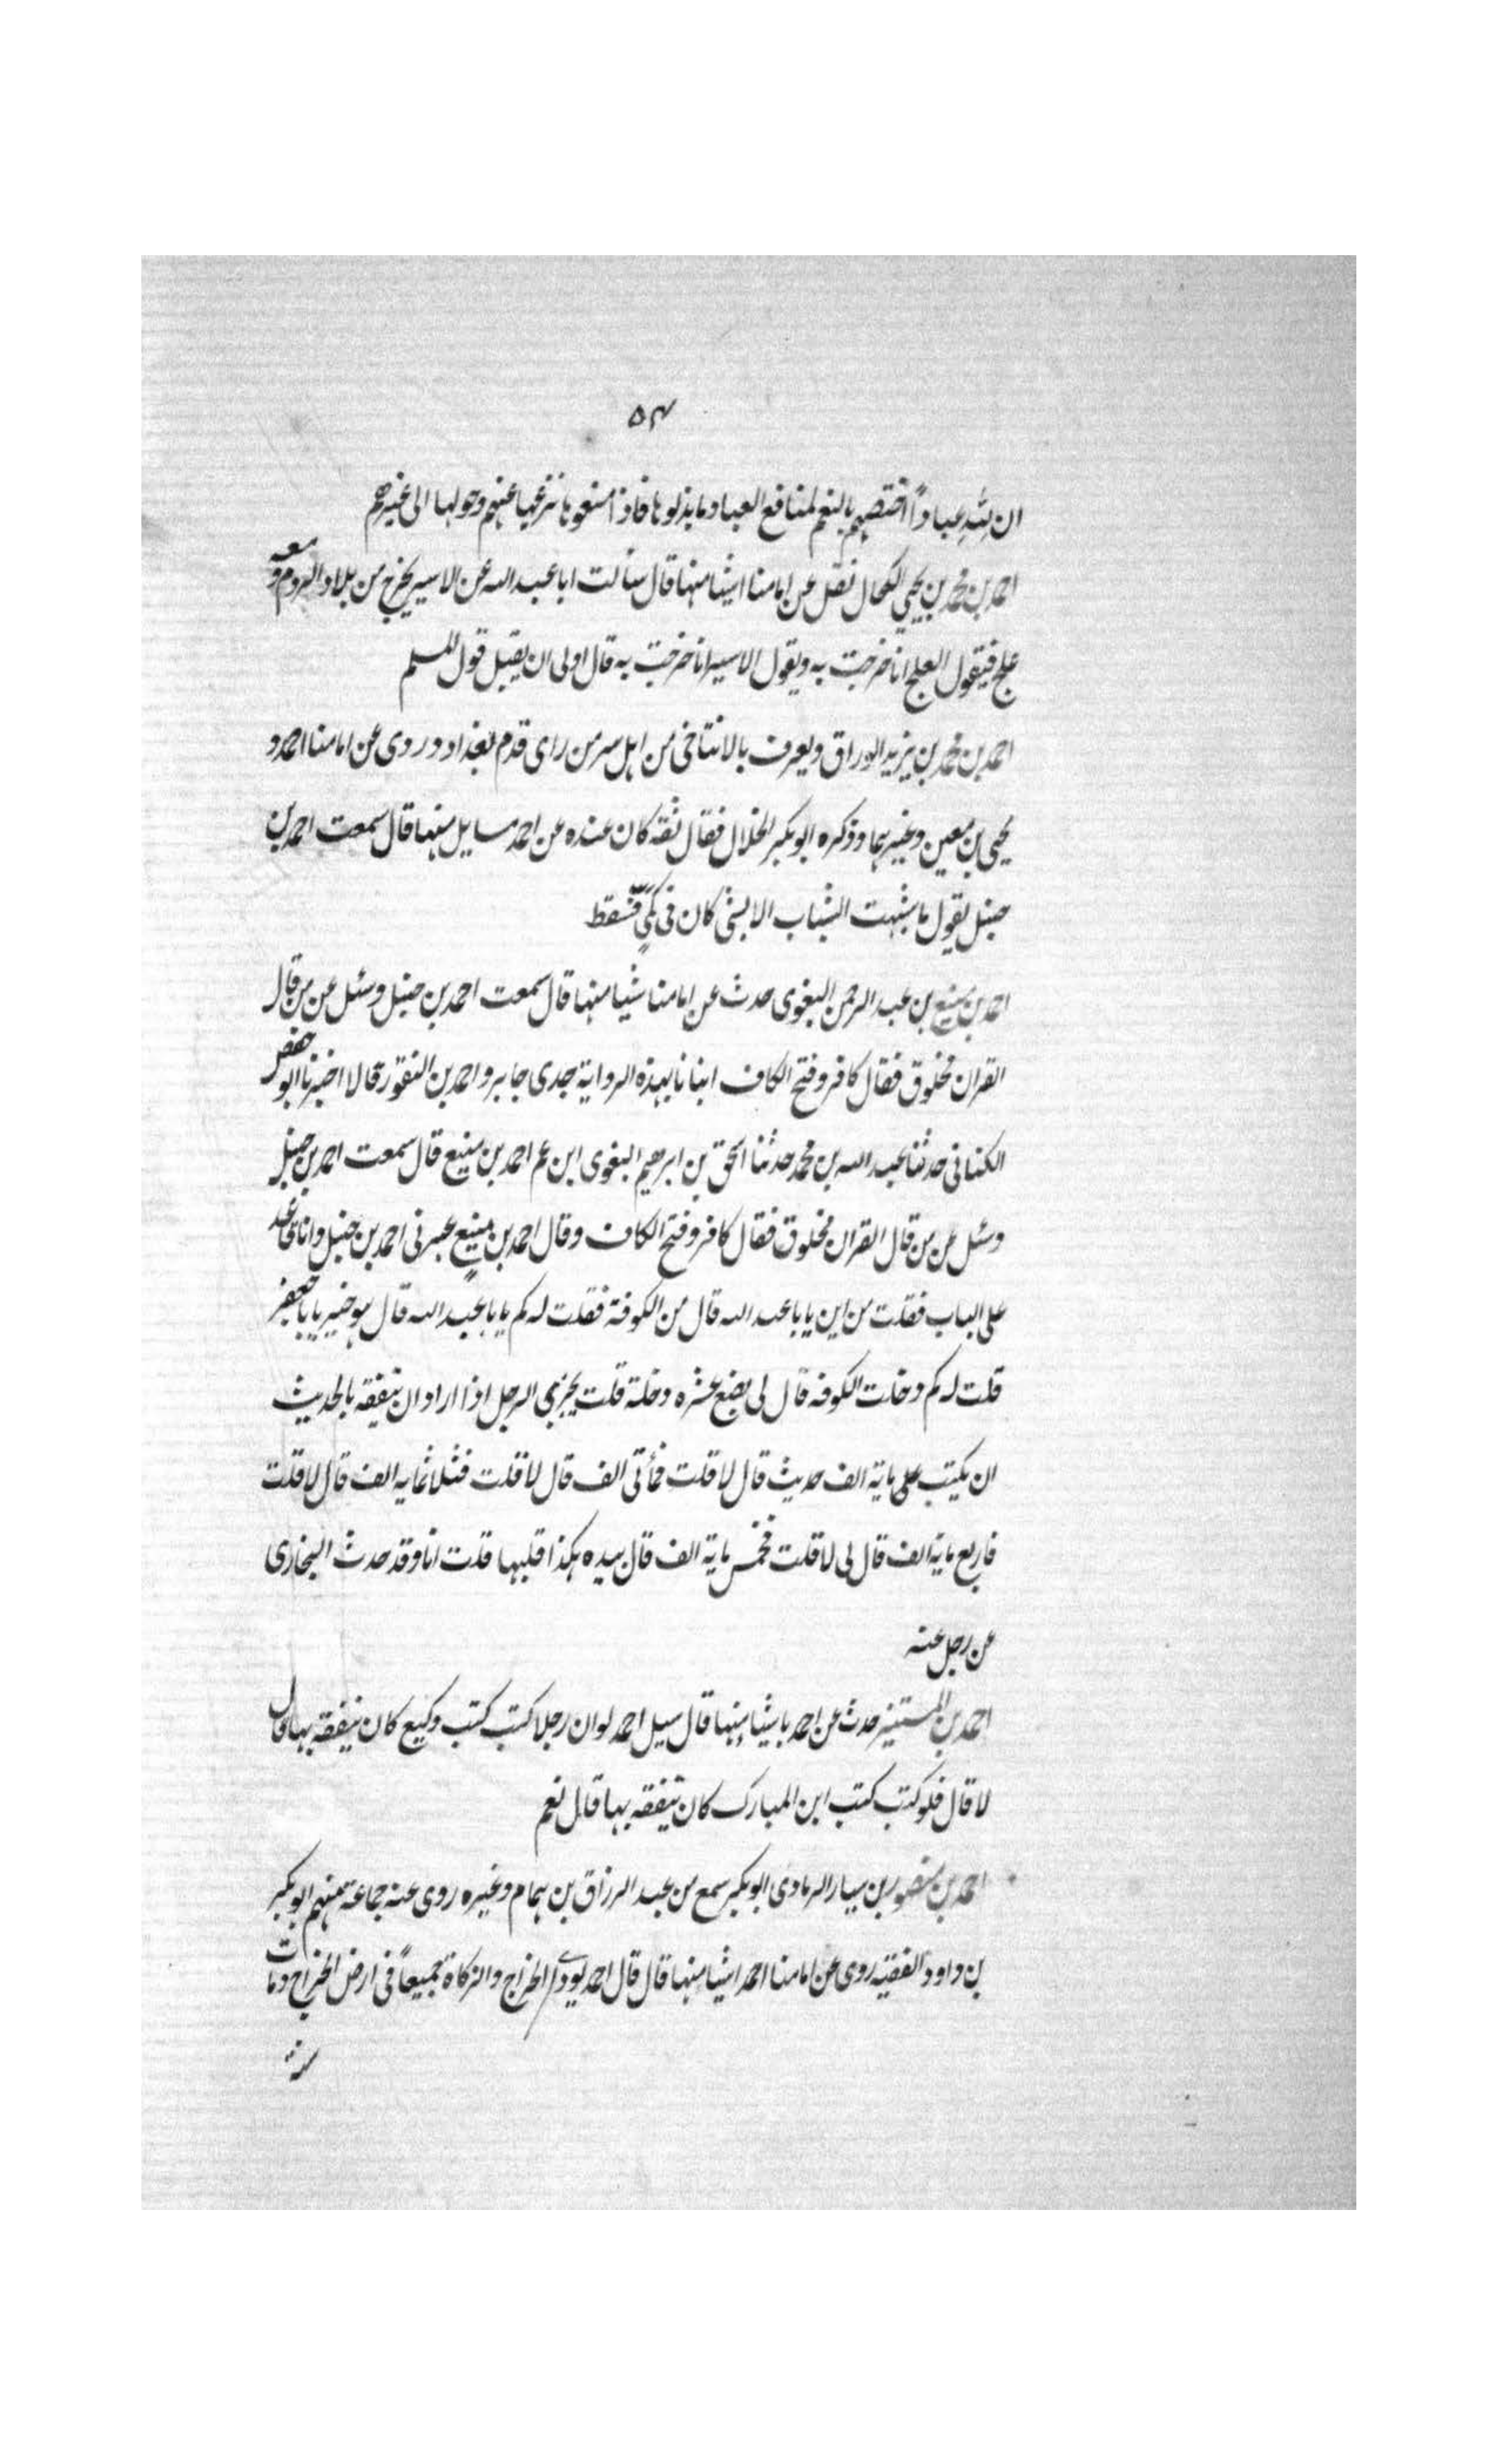 ۵۴
ان لله عباداً اختصهم بالنعم لمنافع العباد ما بذلوها فاذا منعوها نزعها عنهم وحولها الى غيرهم
احمد بن محمد بن يحيى الكحال نقل عن امامنا اشيا منها قال سألت ابا عبد الله عن الاسير يخرج من بلاد الروم و معه
علج فيقول العلج انا خرجت به ويقول الاسير انا خرجت به قال اولى ان يقبل قول المسلم
احمد بن محمد بن يزيد الوراق ويعرف بالايتاخى من اهل سر من راى قدم بغداد و روى عن امامنا احمد و
يحيى بن معين وغيرهما وذكره ابو بكر الخلال فقال ثقة كان عنده عن احمد مسايل منها قال سمعت احمد بن
حنبل يقول ما شبهت الشباب الا بشئ كان فى كمّى فسقط
احمد بن منيع بن عبد الرحمن البغوى حدث عن امامنا شيا منها قال سمعت احمد بن حنبل وسئل عن من قال
القران مخلوق فقال كافر وفتح الكاف انبانا بهذه الرواية جدى جابر و احمد بن النقور قالا اخبرنا ابو حفص
الكنانى حدثنا عبد الله بن محمد حدثنا اسحق بن ابرهيم البغوى ابن عم احمد بن منيع قال سمعت احمد بن حنبل
وسئل عن من قال القران مخلوق فقال كافر وفتح الكاف وقال احمد بن منيع عبر نى احمد بن حنبل وانا قاعد
على الباب فقلت من اين يا با عبد الله قال من الكوفة فقلت له كم يا با عبد الله قال هو خير يا با جعفر
قلت له كم دخلت الكوفه قال لى بضع عشره دخلة قلت يجزى الرجل اذا اراد ان يتفقه بالحديث
ان يكتب على ماية الف حديث قال لا قلت فمأتى الف قال لا قلت فثلاثمايه الف قال لا قلت
فاربع ماية الف قال لى لا قلت فخمس ماية الف قال بيده هكذا قلبها قلت انا وقد حدث البخارى
عن رجل عنه
احمد بن المستنير حدث عن احمد باشيا منها قال سيل احمد لو ان رجلا كتب كتب وكيع كان يتفقه بها قال
لا قال فلو كتب كتب ابن المبارك كان يتفقه بها قال نعم
احمد بن منصور بن سيار الرمادى ابو بكر سمع من عبد الرزاق بن همام وغيره روى عنه جماعة منهم ابو بكر
بن داود الفقيه روى عن امامنا احمد اشيا منها قال قال احمد يودى الخراج والزكاة جميعاً فى ارض الخراج ومات
سنة